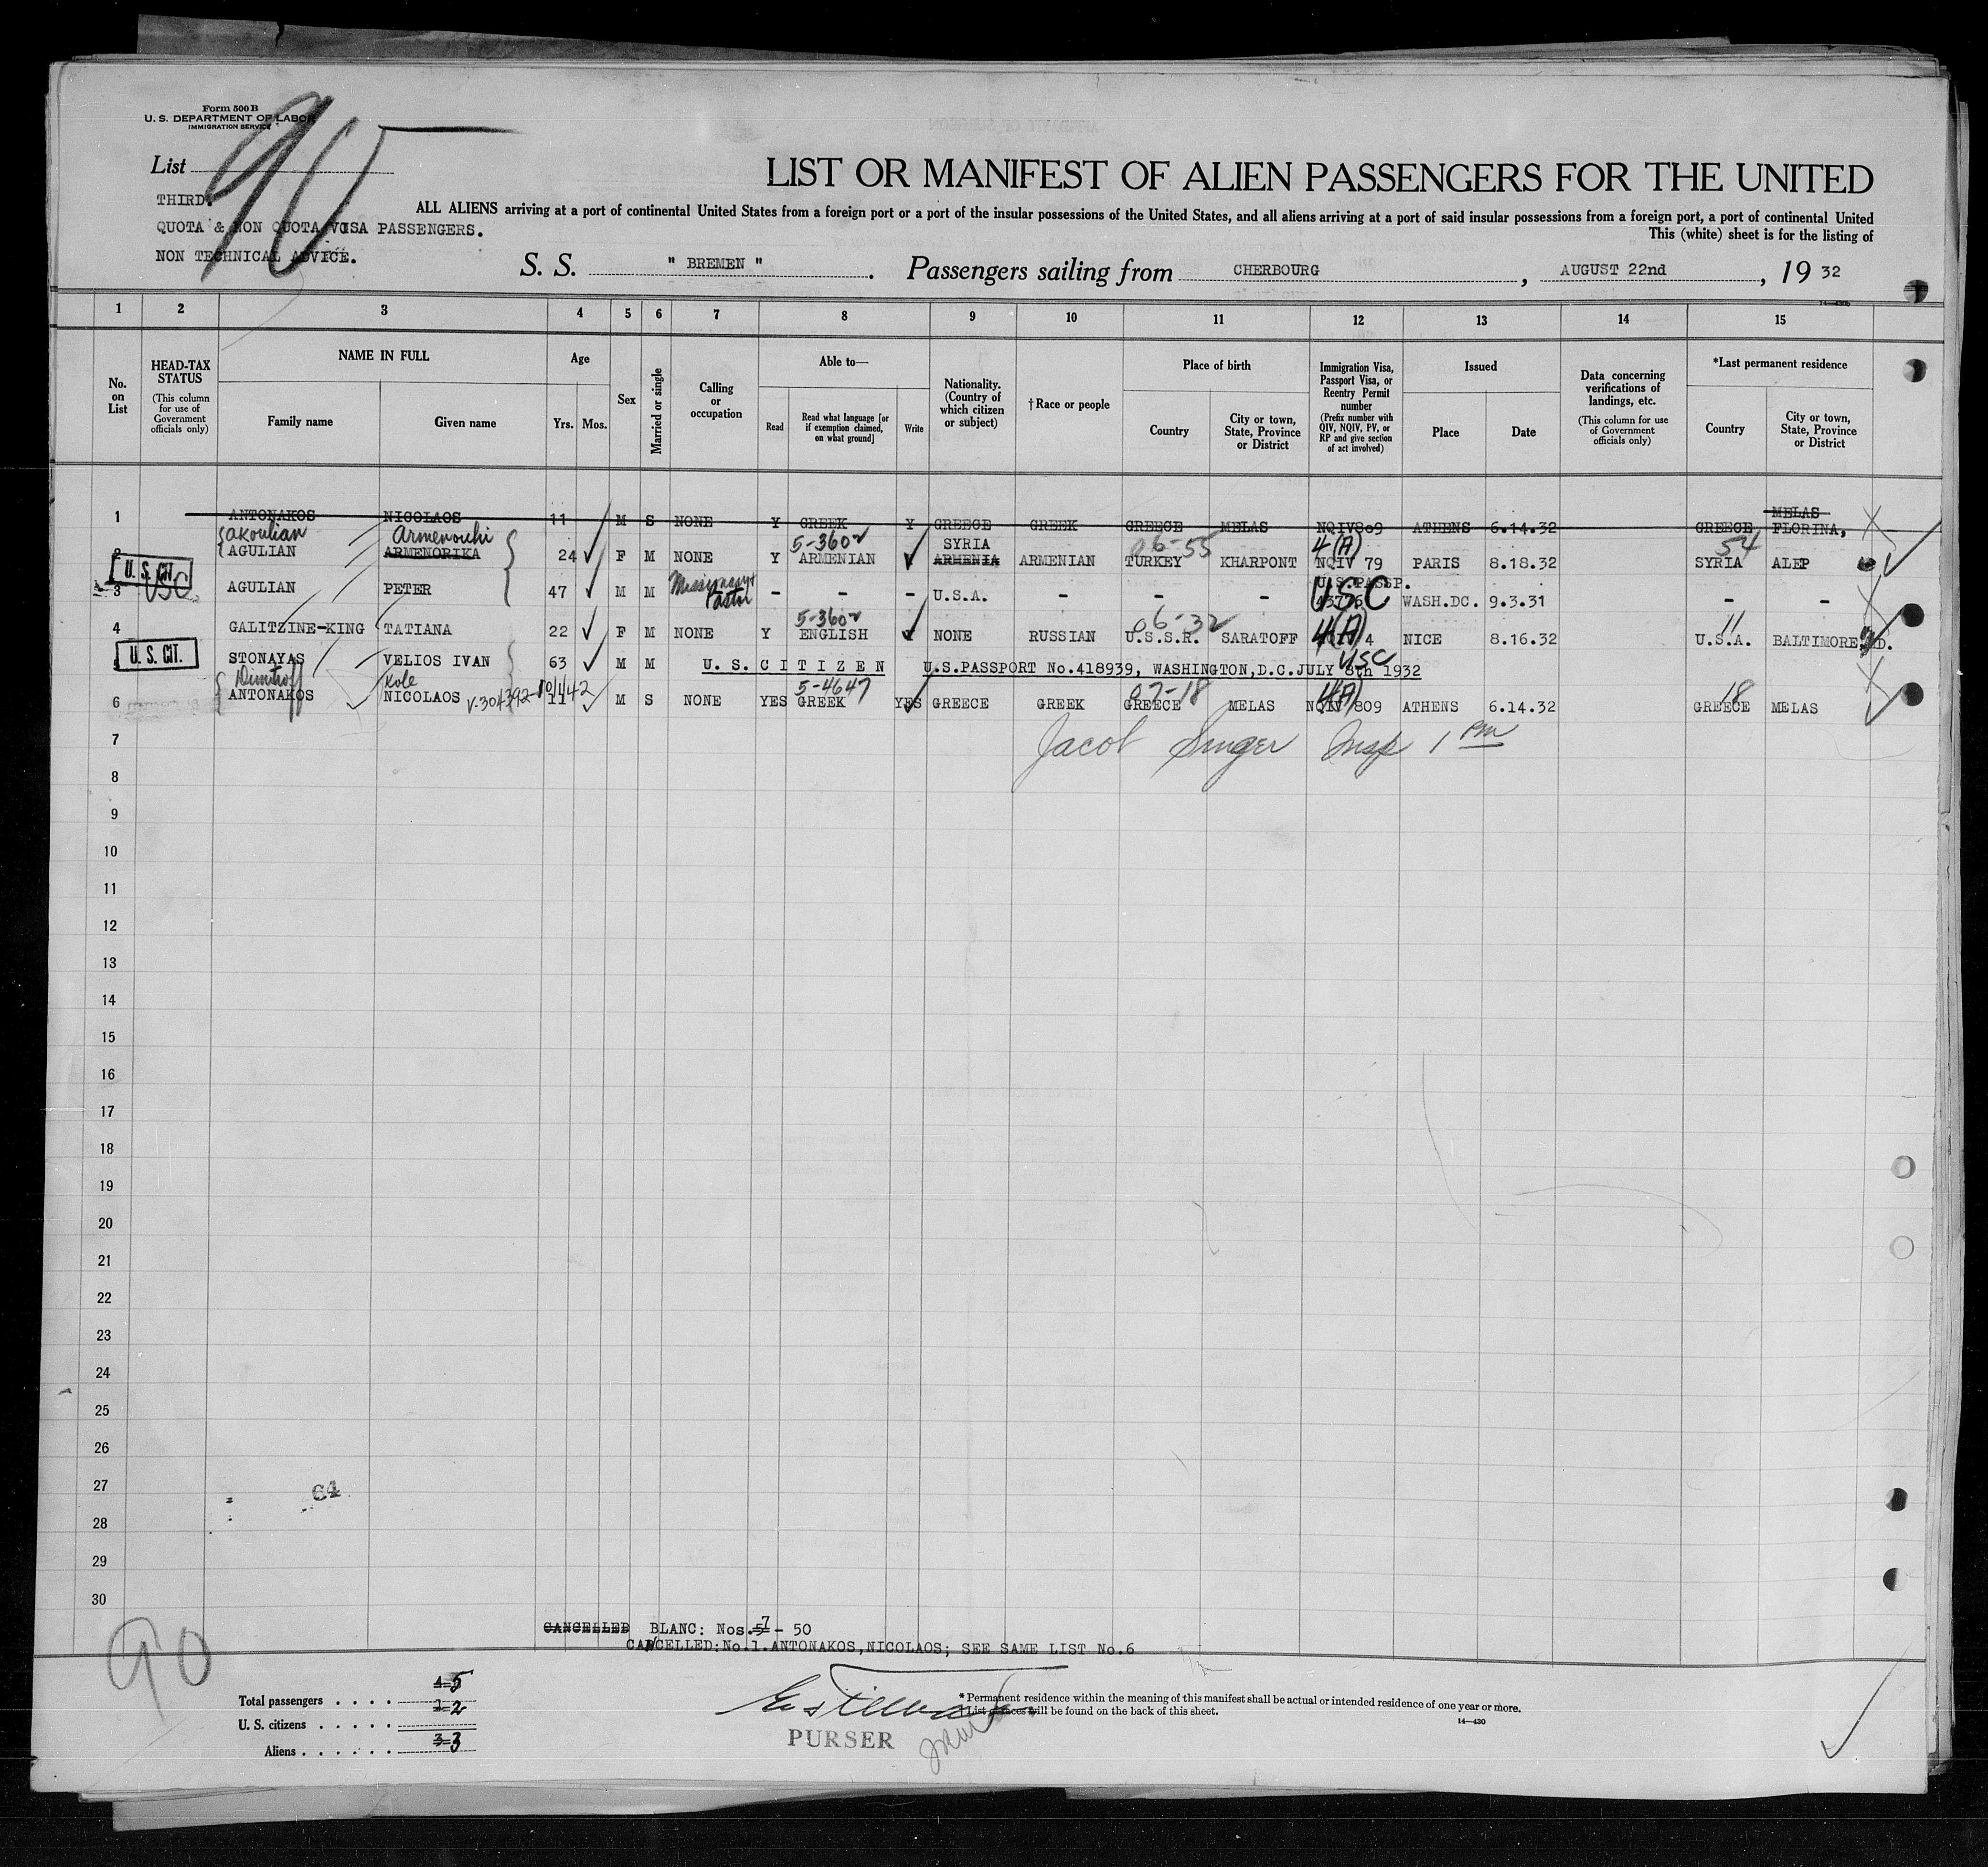 Form 500 B
U. S. DEPARTMENT OF LABOR
IMMIGRATION SERVICE
List
90
LIST OR MANIFEST OF ALIEN PASSENGERS FOR THE UNITED
THIRD.
QUOTA & NON QUOTA VISA PASSENGERS.
NON TECHNICAL ADVICE.
ALL ALIENS arriving at a port of continental United States from a foreign port or a port of the insular possessions of the United States, and all aliens arriving at a port of said insular possessions from a foreign port, a port of continental United
This (white) sheet is for the listing of
S. S. " BREMEN ". Passengers sailing from CHERBOURG, AUGUST 22nd, 19 32
14—430b
1 2 3 4 5 6 7 8 9 10 11 12 13 14 15
No. on List
HEAD-TAX STATUS (This column for use of Government officials only)
NAME IN FULL
Family name Given name
Age
Yrs. Mos.
Sex
Married or single
Calling or occupation
Able to—
Read Read what language [or if exemption claimed, on what ground] Write
Nationality. (Country of which citizen or subject)
†Race or people
Place of birth
Country City or town, State, Province or District
Immigration Visa, Passport Visa, or Reentry Permit number (Prefix number with QIV, NQIV, PV, or RP and give section of act involved)
Issued
Place Date
Data concerning verifications of landings, etc. (This column for use of Government officials only)
*Last permanent residence
Country City or town, State, Province or District
MELAS
1 ANTONAKOS NICOLAOS 11 M S NONE Y GREEK Y GREECE GREEK GREECE MELAS NQIV809 ATHENS 6.14.32 GREECE FLORINA,
Akoulian Armenouhi 5-3602 SYRIA 06-55 4(A) 54
2 AGULIAN ARMENORIKA 24 F M NONE Y ARMENIAN ARMENIA ARMENIAN TURKEY KHARPONT NQIV 79 PARIS 8.18.32 SYRIA ALEP
U. S. CIT. USC Missionary Pastor U.S.PASSP. USC
3 AGULIAN PETER 47 M M - - - U.S.A. - - - WASH.DC. 9.3.31 - -
5-3602 06-32 4(A) 11
4 GALITZINE-KING TATIANA 22 F M NONE Y ENGLISH NONE RUSSIAN U.S.S.R. SARATOFF 4 NICE 8.16.32 U.S.A. BALTIMORE,MD.
U. S. CIT. USC
5 STONAYAS VELIOS IVAN 63 M M U. S. C I T I Z E N U.S.PASSPORT No.418939, WASHINGTON,D.C.JULY 8th 1932
Dimitroff Kole V-304392-10/1/42 5-4647 07-18 4(A) 18
6 ANTONAKOS NICOLAOS 11 M S NONE YES GREEK YES GREECE GREEK GREECE MELAS NQIV 809 ATHENS 6.14.32 GREECE MELAS
7 Jacob Singer Insp 1 PM
8
9
10
11
12
13
14
15
16
17
18
19
20
21
22
23
24
25
26
27
28
29
30
64
CANCELLED BLANC: Nos. 7 - 50
CANCELLED:No.1.ANTONAKOS,NICOLAOS; SEE SAME LIST No.6
90
Total passengers . . . . 5
U. S. citizens . . . . . 2
Aliens . . . . . . 3
PURSER
* Permanent residence within the meaning of this manifest shall be actual or intended residence of one year or more.
† List of races will be found on the back of this sheet.
14—430